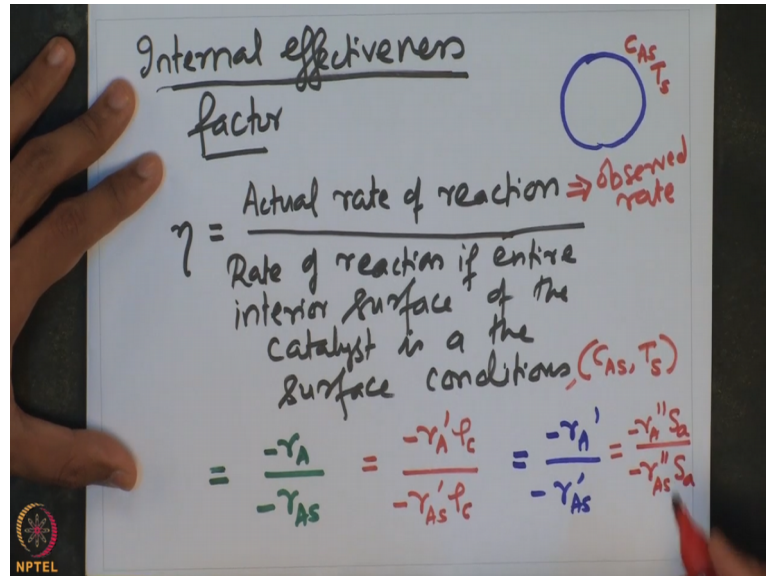 Internal effectiveness
factor
C_AS
T_S
η = Actual rate of reaction ⇒ observed rate
Rate of reaction if entire
interior surface of the
catalyst is a the
surface conditions, (C_AS, T_S)
= -r_A / -r_AS = -r_A' ρ_c / -r_AS' ρ_c = -r_A' / -r_AS' = -r_A'' S_a / -r_AS'' S_a
NPTEL